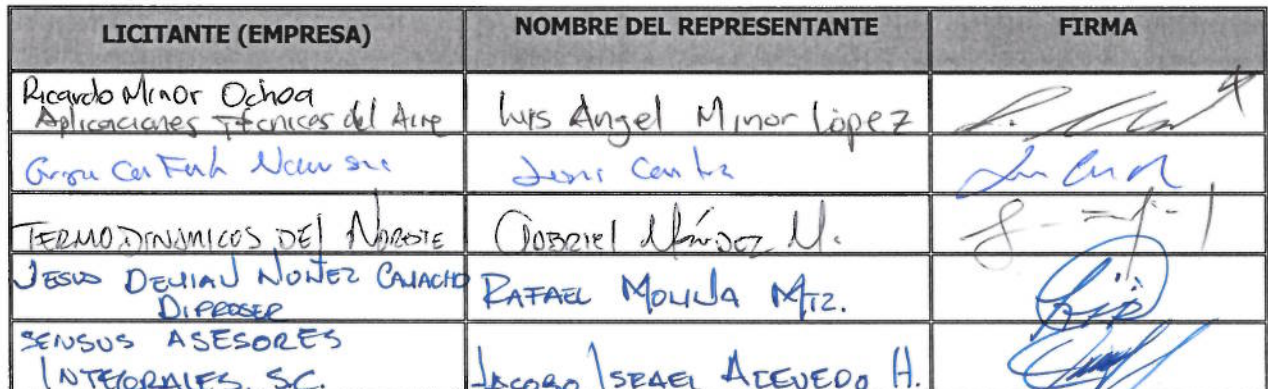 LICITANTE (EMPRESA) NOMBRE DEL REPRESENTANTE FIRMA
Ricardo Minor Ochoa
Aplicaciones Técnicas del Aire Luis Angel Minor López
Grupo
TERMODINÁMICOS DEL NORESTE GABRIEL M.
JESUS DEMIAN NUÑEZ CAMACHO
DIPROSER RAFAEL MOLINA MTZ.
SENSUS ASESORES
INTEGRALES, S.C. JACOBO ISRAEL ACEVEDO H.